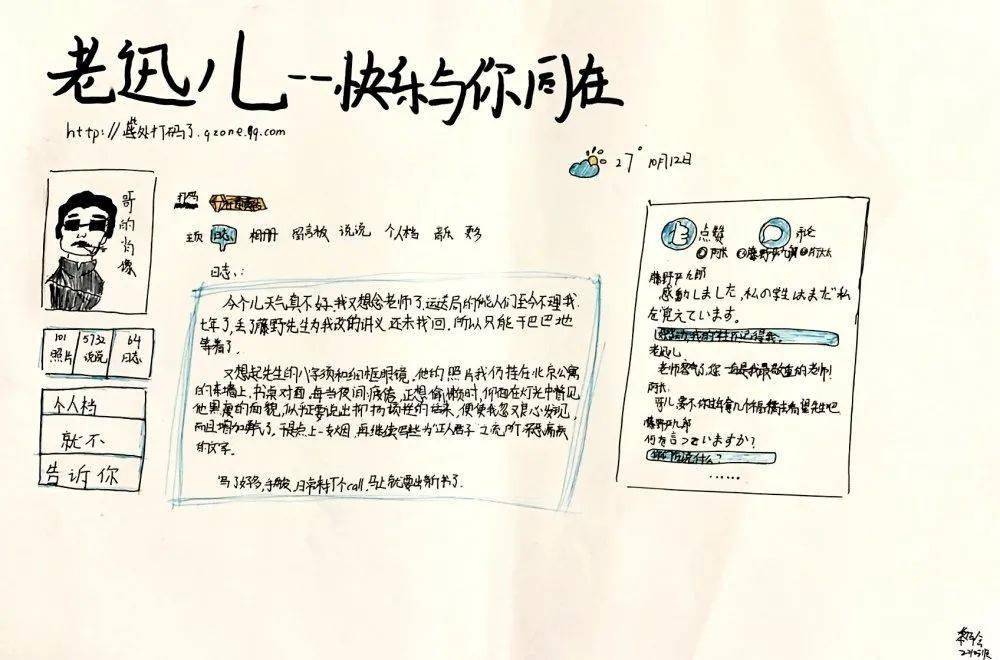 老迅儿--快乐与你同在
http://此处打码了.qzone.qq.com
27° 10月12日
哥的肖像
主页 日志 相册 留言板 说说 个人档 音乐 更多
日志:
101 照片 5732 说说 64 日志
个人档
就不
告诉你
今个儿天气真不好,我又想念老师了,运送局的能人们至今不理我
七年了,丢了藤野先生为我改的讲义,还未找回,所以只能干巴巴地
等着了.
又想起先生的八字须和细框眼镜,他的照片我仍挂在北京公寓
的东墙上,书桌对面,每当夜间疲倦,正想偷懒时,仰面在灯光中瞥见
他黑瘦的面貌,似乎正要说出抑扬顿挫的话来,便使我忽又良心发现,
而且增加勇气了,于是点上一支烟,再继续写些为“正人君子”之流所深恶痛疾
的文字。
写了好多,手酸,日常打个call,马上就要出新书了.
点赞 评论
藤野严九郎
感動しました,私の学生はまだ私
を覚えています。
老迅儿
老师客气了,您一直是我最敬重的老师!
阿米
藤野严九郎
何を言っていますか?
你们在说什么?
……